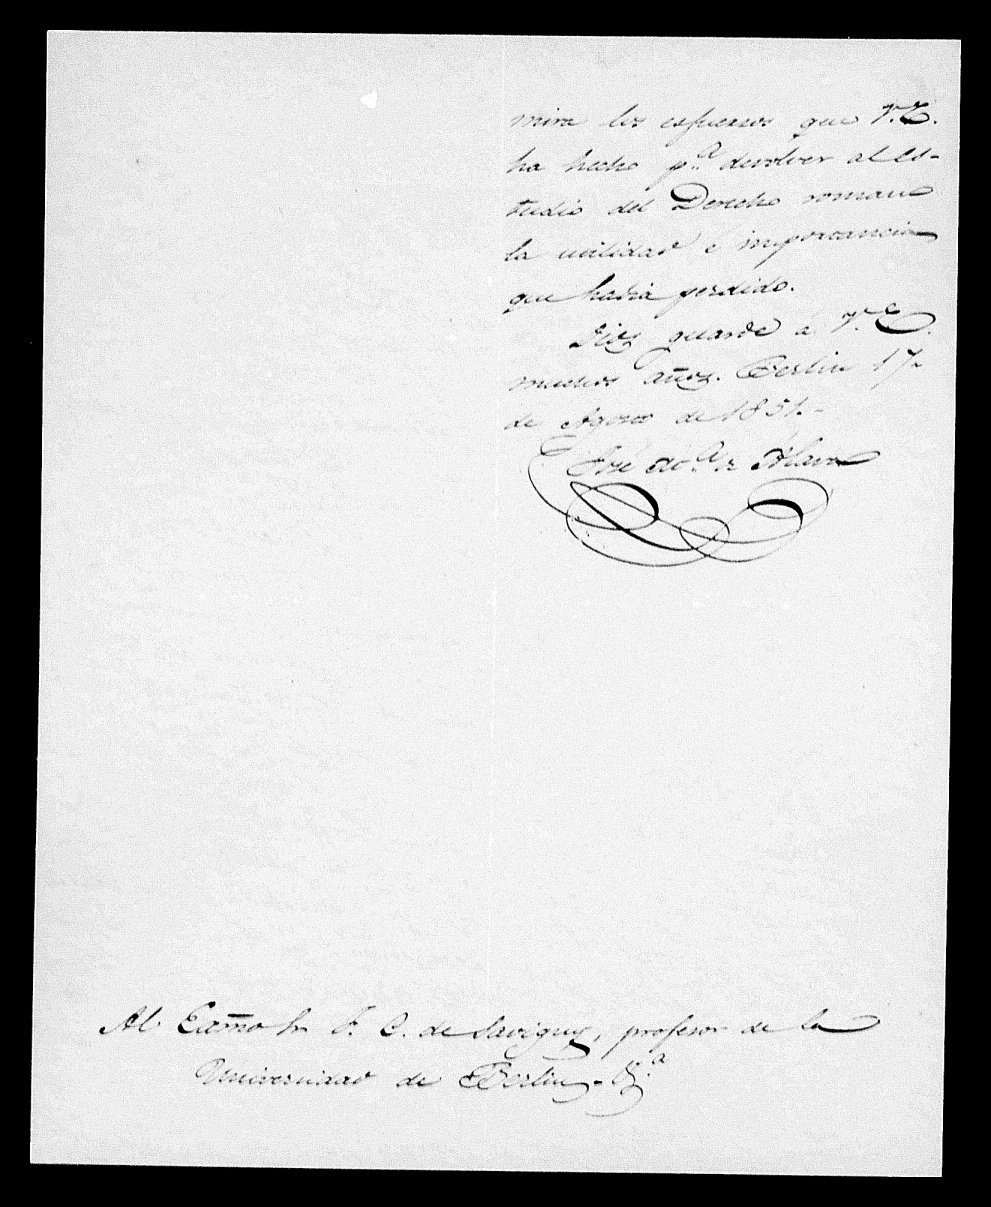 mira los esfuerzos que V.E.
ha hecho p.ª devolver al es-
tudio del Derecho romano
la utilidad é importancia
que había perdido.
Dios guarde á V.E.
muchos años. Berlin 17
de Agosto de 1851.-
José M.ª de Álava
Al Exc̃mo Sr. F. C. de Savigny, profesor de la
Universidad de Berlin - &.ª